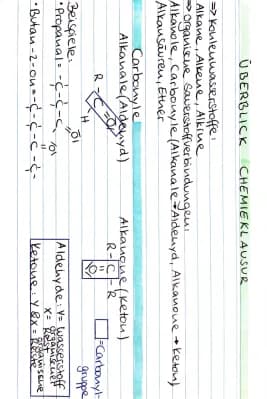 ÜBERBLICK CHEMIEKLAUSUR
⇒ Kohlenwasserstoffe:
Alkane, Alkene, Alkine
⇒ organische Sauerstoffverbindungen:
Alkanole, Carbonyle (Alkanale → Aldehyd, Alkanone → Keton)
Alkansäuren, Ether
Carbonyle
Alkanale (Aldehyd)
Alkanone (Keton)
R - C = O
H
R - C - R
O
□ = Carbonyl-
gruppe
Beispiele:
• Propanal = -C-C-C
O
H
• Butan-2-on = -C-C-C-C-
O
Aldehyde: Y = Wasserstoff
X = organischer Rest
Ketone: Y & X = organische Reste